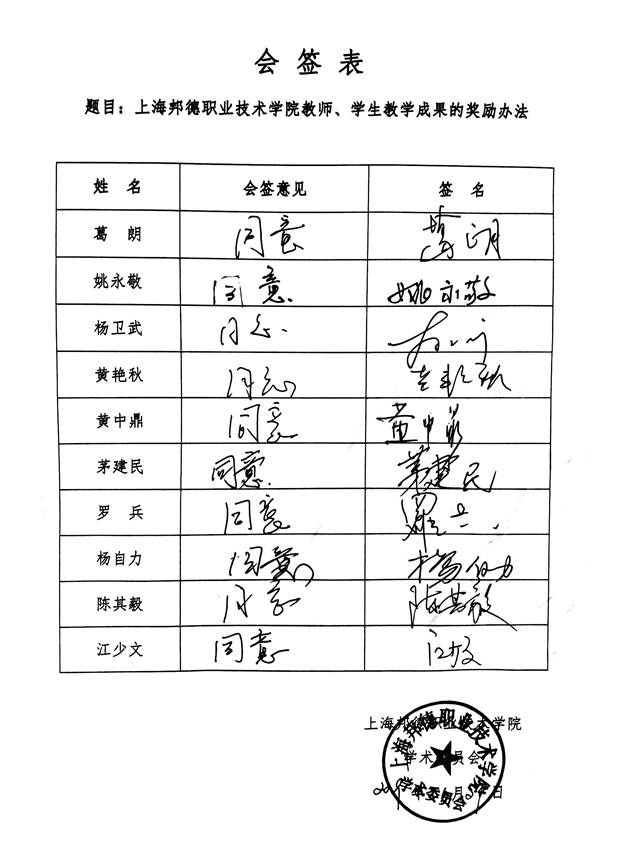 会 签 表
题目：上海邦德职业技术学院教师、学生教学成果的奖励办法
姓 名 会签意见 签 名
葛 朗 同意 葛朗
姚永敬 同意. 姚永敬
杨卫武 同意.
黄艳秋 同意
黄中鼎 同意 黄中鼎
茅建民 同意. 茅建民
罗 兵 同意 罗兵
杨自力 同意 杨自力
陈其毅 同意 陈其毅
江少文 同意
上海邦德职业技术学院
学术委员会
上海邦德职业技术学院
学术委员会
月 日